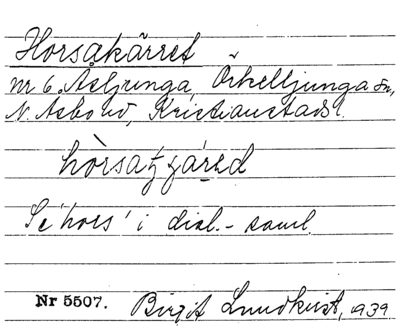 Horsakärret
nr 6 Åsljunga, Örkelljunga sn,
N. Åsbo hd, Kristianstads l.
Se 'hors' i dial.-saml.
Nr 5507. Birgit Lundkvist, 1939